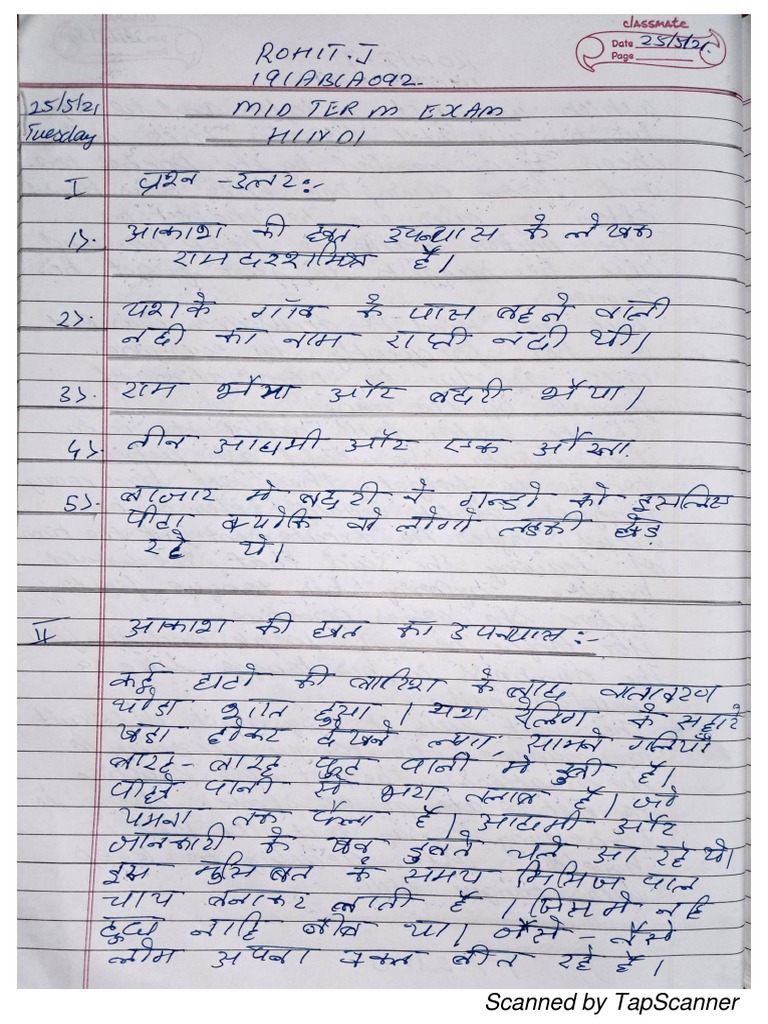 classmate
Date 25/5/21.
Page
ROHIT.J
191ABLA092.
25/5/21
Tuesday
MID TERM EXAM
HINDI
I प्रश्न -उत्तर:-
1>. आकाश की छत उपन्यास के लेखक
रामदरशमिश्र हैं।
2>. यश के गाँव के पास बहने वाली
नदी का नाम राप्ती नदी थी।
3>. राम भैया और बदरी भैया।
4>. तीन आधमी और एक औरत.
5>. बाजार मे बदरी ने गुन्डो को इसलिए
पीटा क्योकि वो लोगो लडकी छेड़
रहे थे।
II आकाश की छत का उपन्यास:-
कई घाटो की बारिश के बाद वातावरण
थोडा शात हुया। यश रेलिंग के सहारे
खडा होकर देखने लगा, सामने गलियाँ
बारह-बारह फूट पानी मे डुबी है।
पीछे पानी से भरा तलाब है। जो
यमना तक फैला है। आधमी और
जानकारी के शव डुबते चले आ रहे थे।
इस मुसिबत के समय मिसिज पाल
चाय बनाकर लाती है। जिस मे नहि
दुध नाहि नीब था। जैसे-तैसे
लोग अपना वक्त बीत रहे है।
Scanned by TapScanner